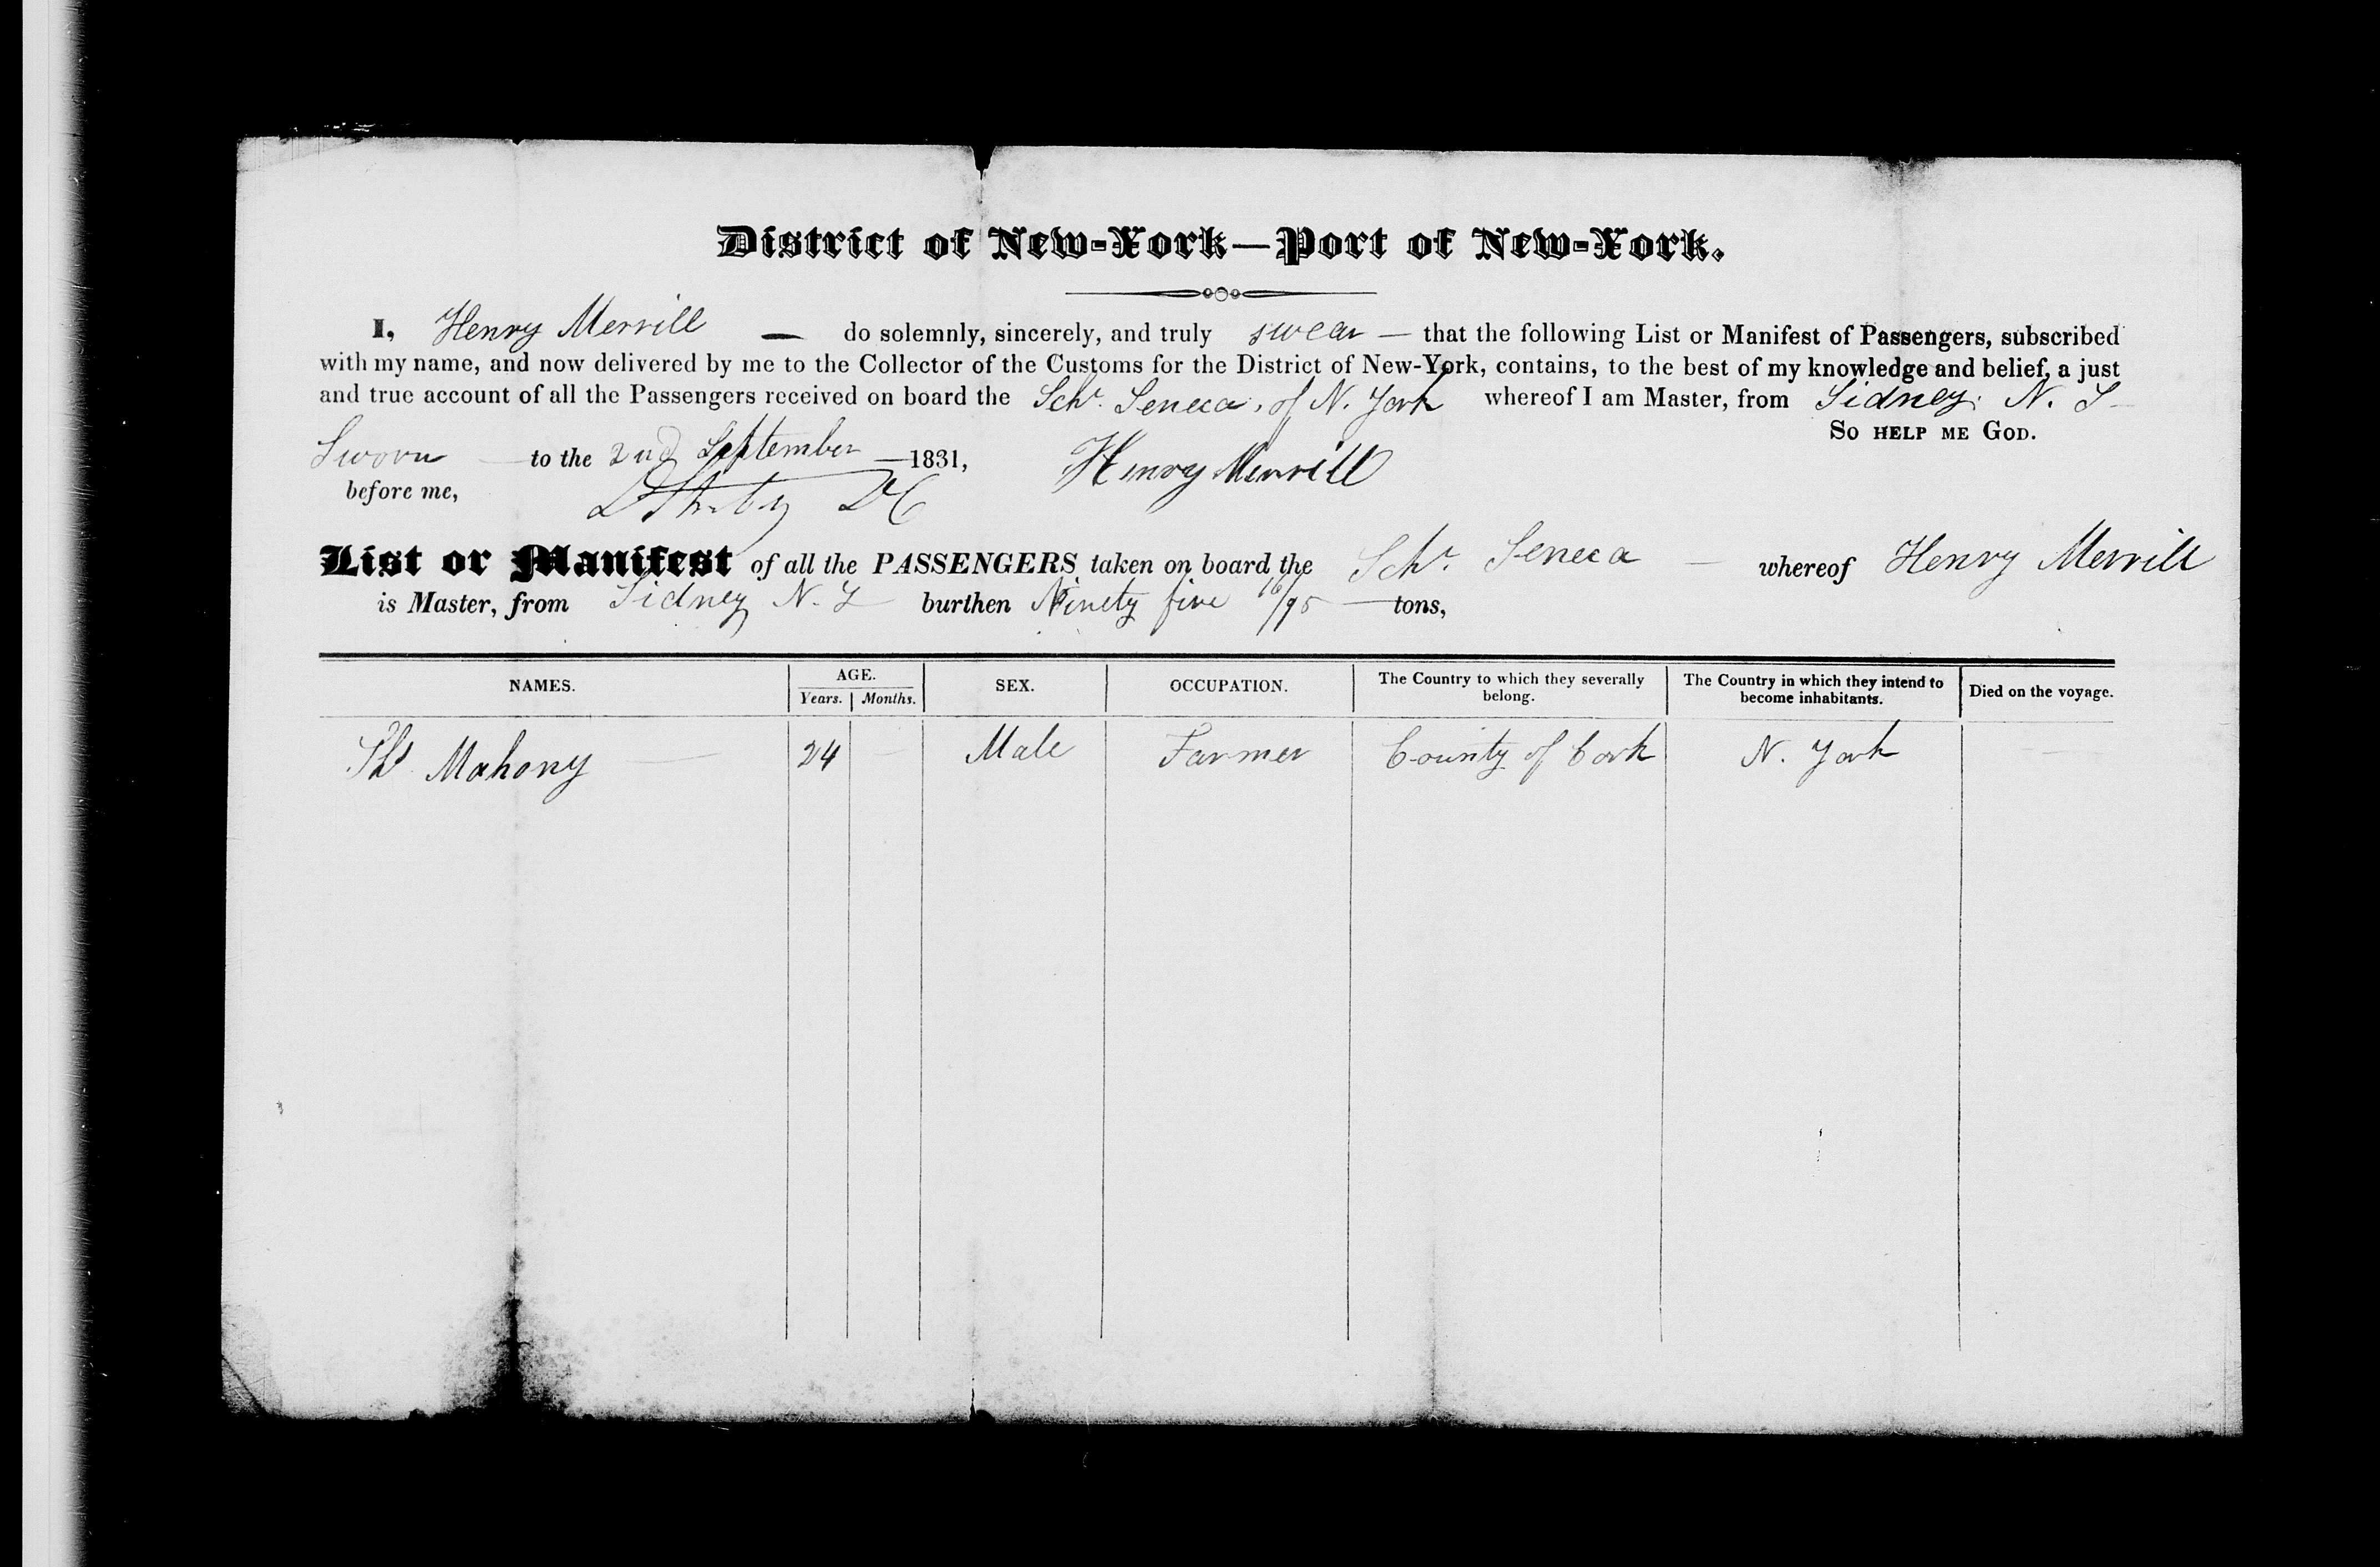 District of New-York—Port of New-York.
I, Henry Merrill — do solemnly, sincerely, and truly swear — that the following List or Manifest of Passengers, subscribed
with my name, and now delivered by me to the Collector of the Customs for the District of New-York, contains, to the best of my knowledge and belief, a just
and true account of all the Passengers received on board the Schr. Seneca, of N. York whereof I am Master, from Sidney, N. S
So help me God.
Sworn — to the 2nd September — 1831, Henry Merrill
before me,
List or Manifest of all the PASSENGERS taken on board the Schr. Seneca — whereof Henry Merrill
is Master, from Sidney N. S burthen Ninety five 16/95 — tons,
NAMES. AGE. Years. Months. SEX. OCCUPATION. The Country to which they severally belong. The Country in which they intend to become inhabitants. Died on the voyage.
Ths Mahony — 24 — Male Farmer County of Cork N. York —